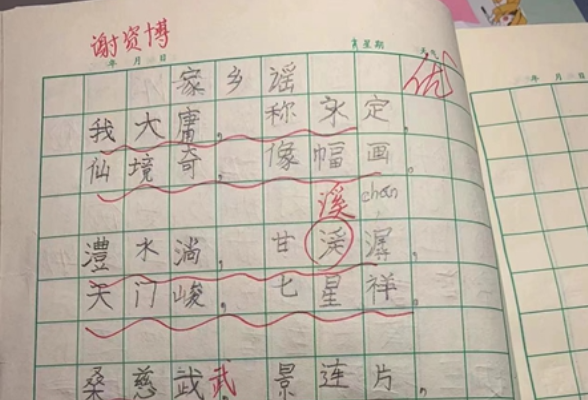 谢贤博
年 月 日 星期 天气
优
家乡谣
我大庸,称永定。
仙境奇,像幅画。
溪 chán
澧水淌,甘溪潺。
天门峻,七星祥。
桑慈武武景连片,
年 月 日